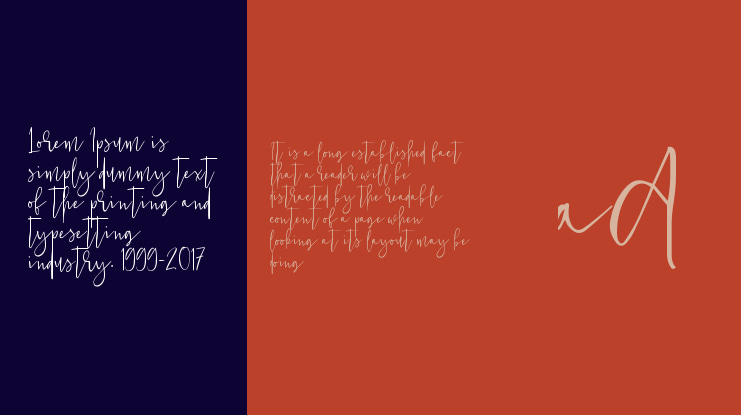 Lorem Ipsum is
simply dummy text
of the printing and
typesetting
industry. 1999-2017
It is a long established fact
that a reader will be
distracted by the readable
content of a page when
looking at its layout may be
doing
aA